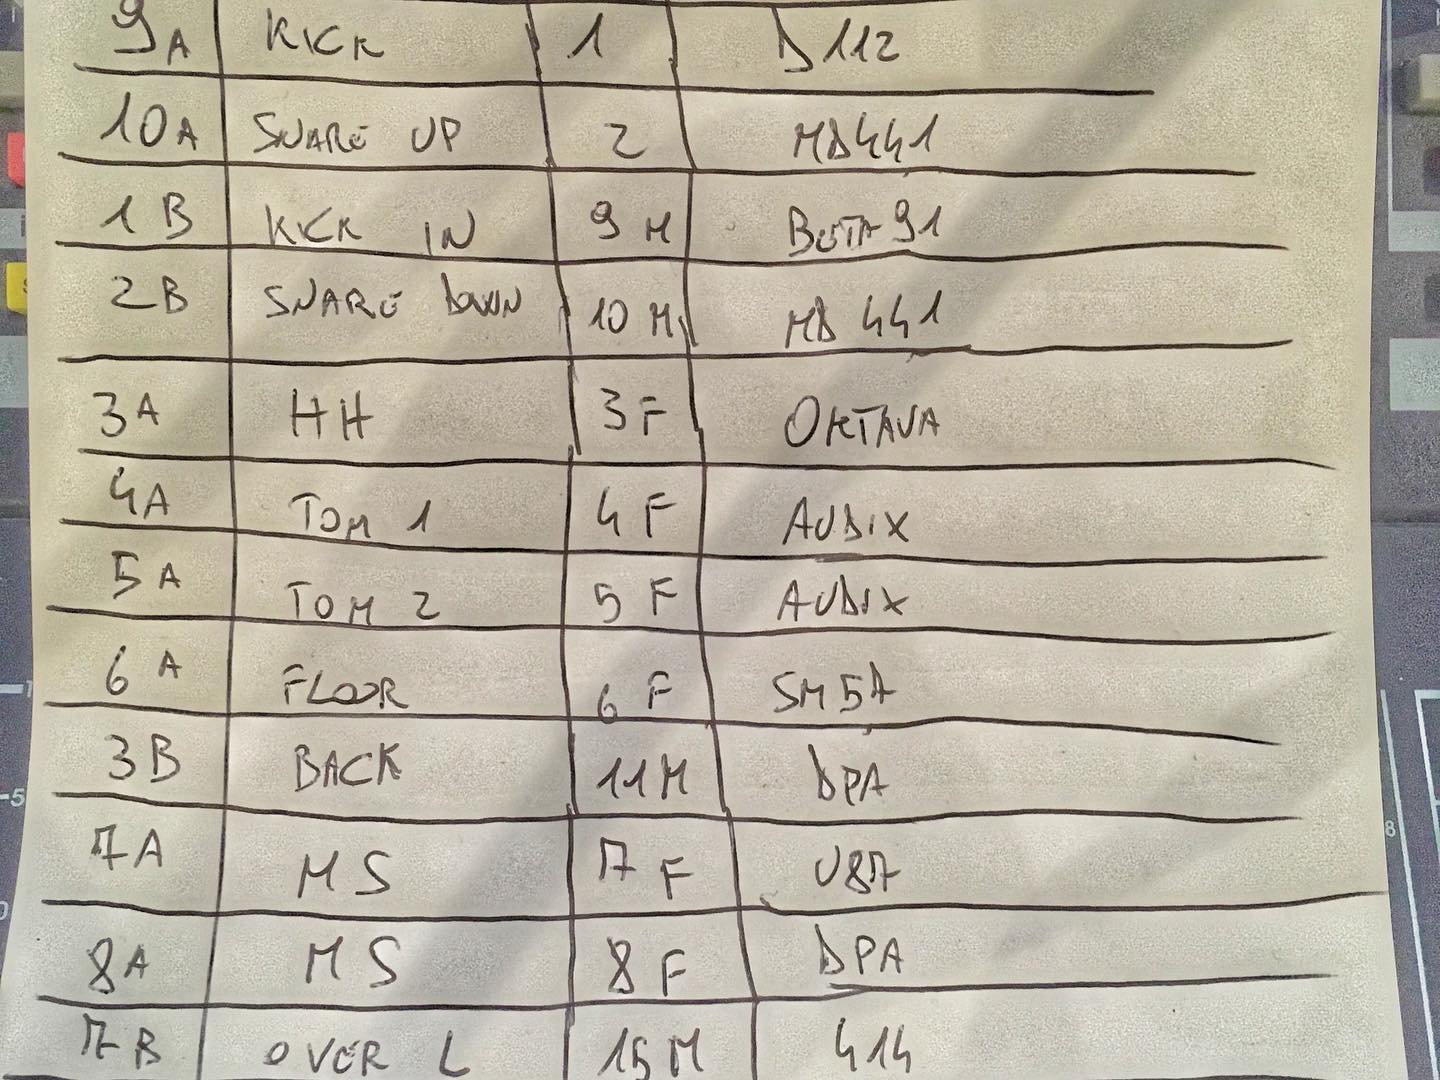 9A KICK 1 D112
10A SNARE UP 2 MD441
1B KICK IN 9M BETA 91
2B SNARE DOWN 10M MD 441
3A HH 3F OKTAVA
4A TOM 1 4F AUDIX
5A TOM 2 5F AUDIX
6A FLOOR 6F SM57
3B BACK 11M DPA
7A MS 7F U87
8A MS 8F DPA
7B OVER L 15M 414